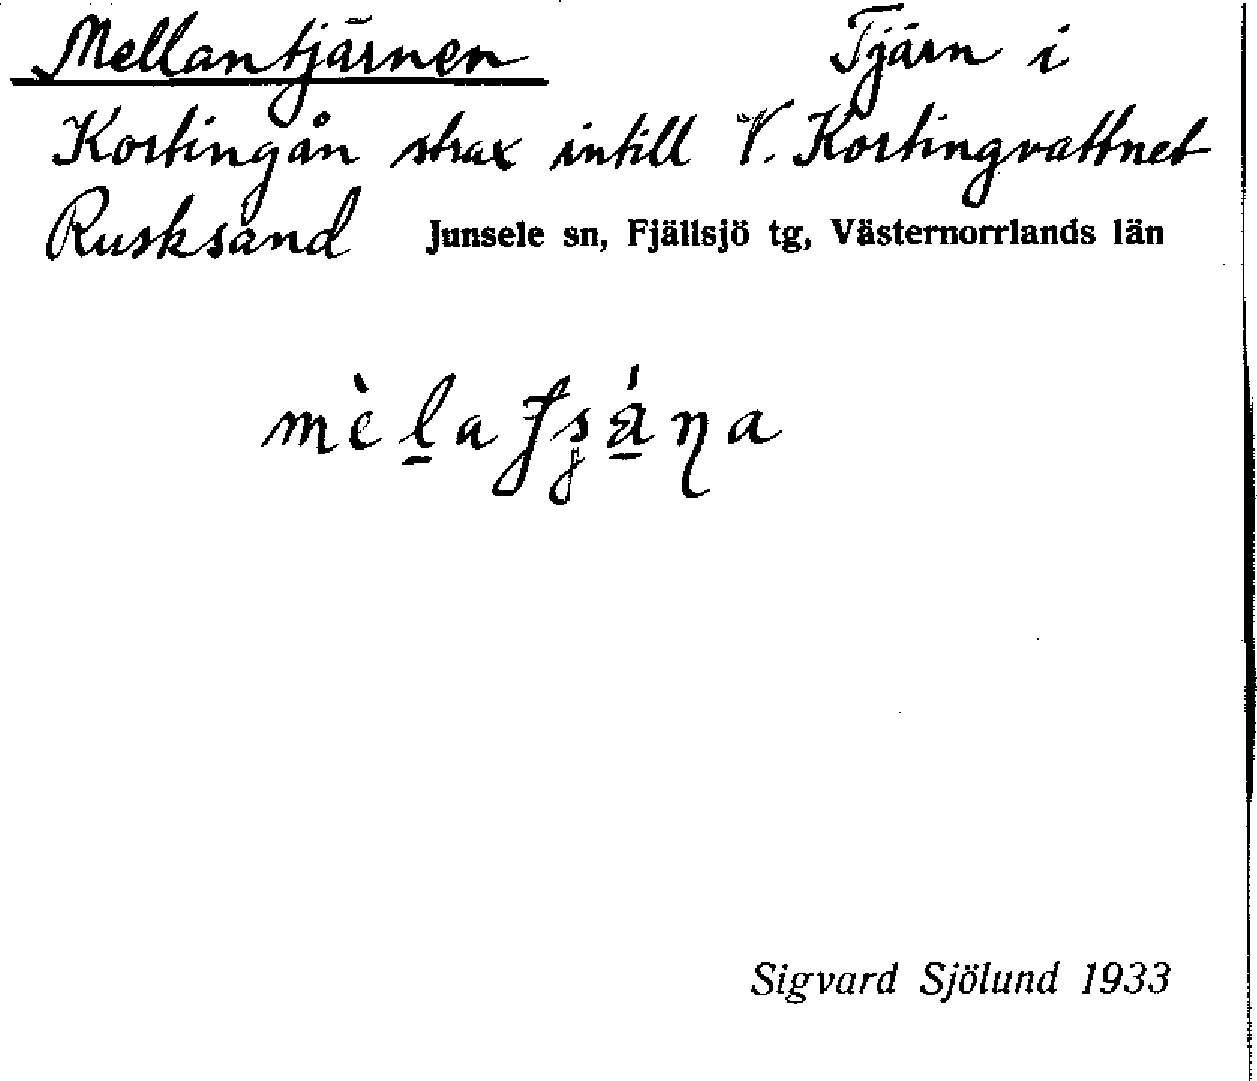 Mellantjärnen Tjärn i
Kortingån strax intill V. Kortingvattnet
Rusksand Junsele sn, Fjällsjö tg, Västernorrlands län
Sigvard Sjölund 1933